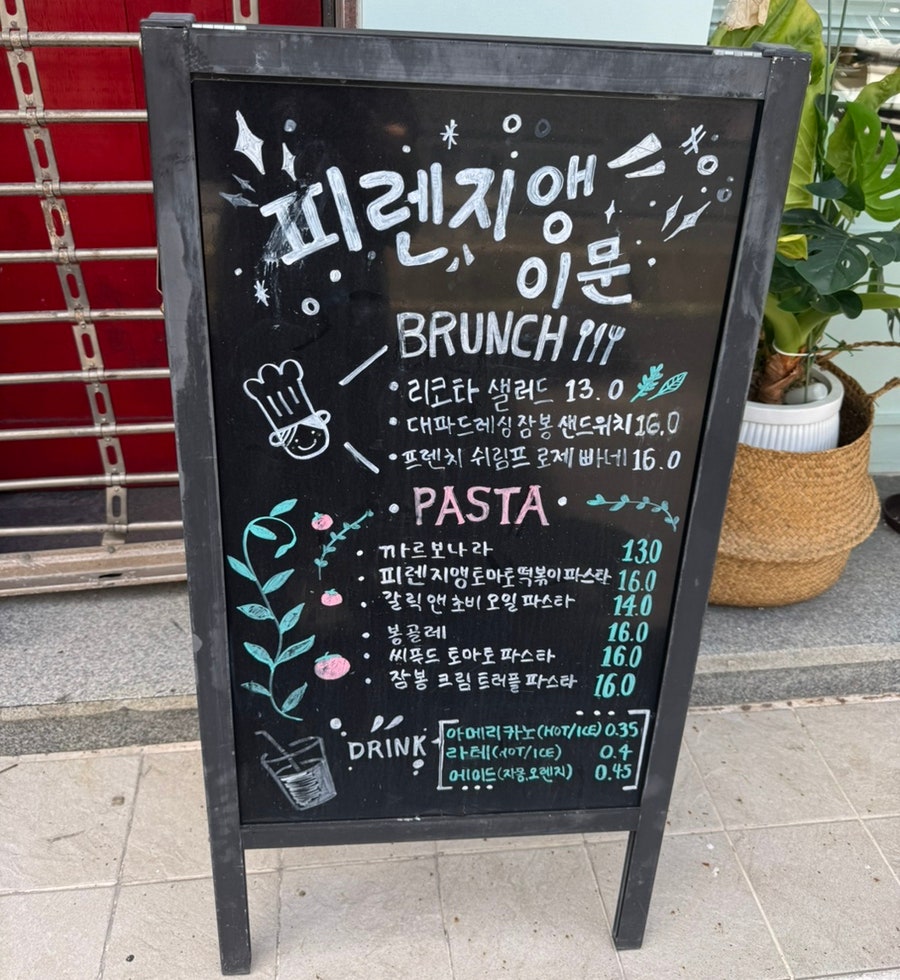 피렌지앵
이문
BRUNCH
리코타 샐러드 13.0
대파드레싱 잠봉 샌드위치 16.0
프렌치 쉬림프 로제 빠네 16.0
PASTA
까르보나라 13.0
피렌지앵 토마토 떡볶이 파스타 16.0
갈릭 앤초비 오일 파스타 14.0
봉골레 16.0
씨푸드 토마토 파스타 16.0
잠봉 크림 트러플 파스타 16.0
DRINK
아메리카노(HOT/ICE) 0.35
라테(HOT/ICE) 0.4
에이드(자몽,오렌지) 0.45